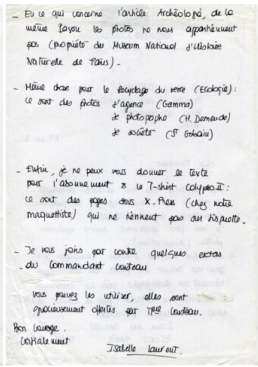 - En ce qui concerne l'article Archéologie, de la
même façon les photos ne nous appartiennent
pas (propriété du Museum National d'Histoire
Naturelle de Paris).
- Même chose pour le recyclage du verre (Ecologie):
ce sont des photos d'agence (Gamma)
de photographe (H.
de société (St Gobain)
- Enfin, je ne peux vous donner le texte
pour l'abonnement & le T-shirt Calypso II:
ce sont des pages sous X.Press (chez notre
maquettiste) qui ne tiennent pas sur disquette.
- Je vous joins par contre quelques extras
du Commandant Cousteau.
Vous pouvez les utiliser, elles sont
gracieusement offertes par Mme Cousteau.
Bon courage.
Cordialement
Isabelle Laurent.